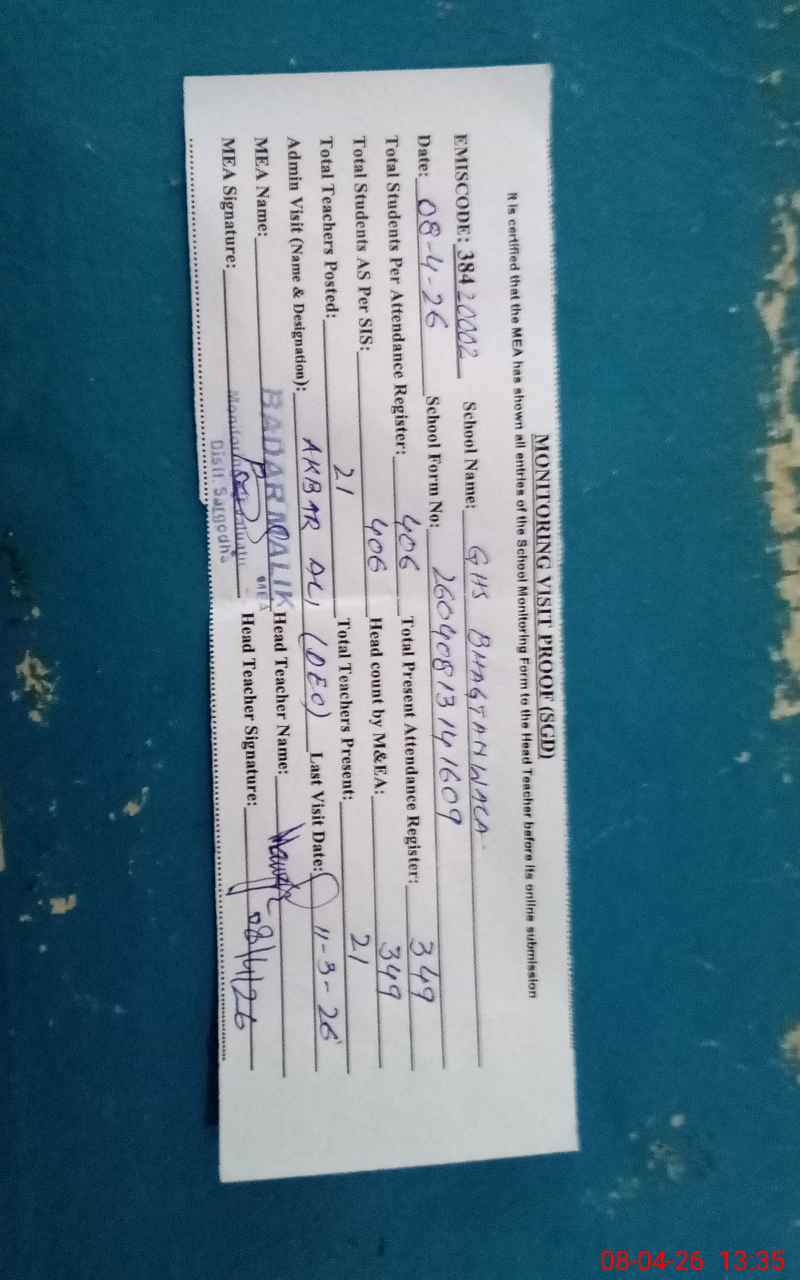 MONITORING VISIT PROOF (SGD)
It is certified that the MEA has shown all entries of the School Monitoring Form to the Head Teacher before its online submission
EMISCODE: 38420002 School Name: GHS BHAGTANWALA
Date: 08-4-26 School Form No: 26040813141609
Total Students Per Attendance Register: 406 Total Present Attendance Register: 349
Total Students AS Per SIS: 406 Head count by M&EA: 349
Total Teachers Posted: 21 Total Teachers Present: 21
Admin Visit (Name & Designation): AKBAR ALI (DEO) Last Visit Date: 11-3-26
MEA Name: BADAR MALIK Head Teacher Name:
MEA Signature: Head Teacher Signature: 08/4/26
Distt. Sargodha
08-04-26 13:35